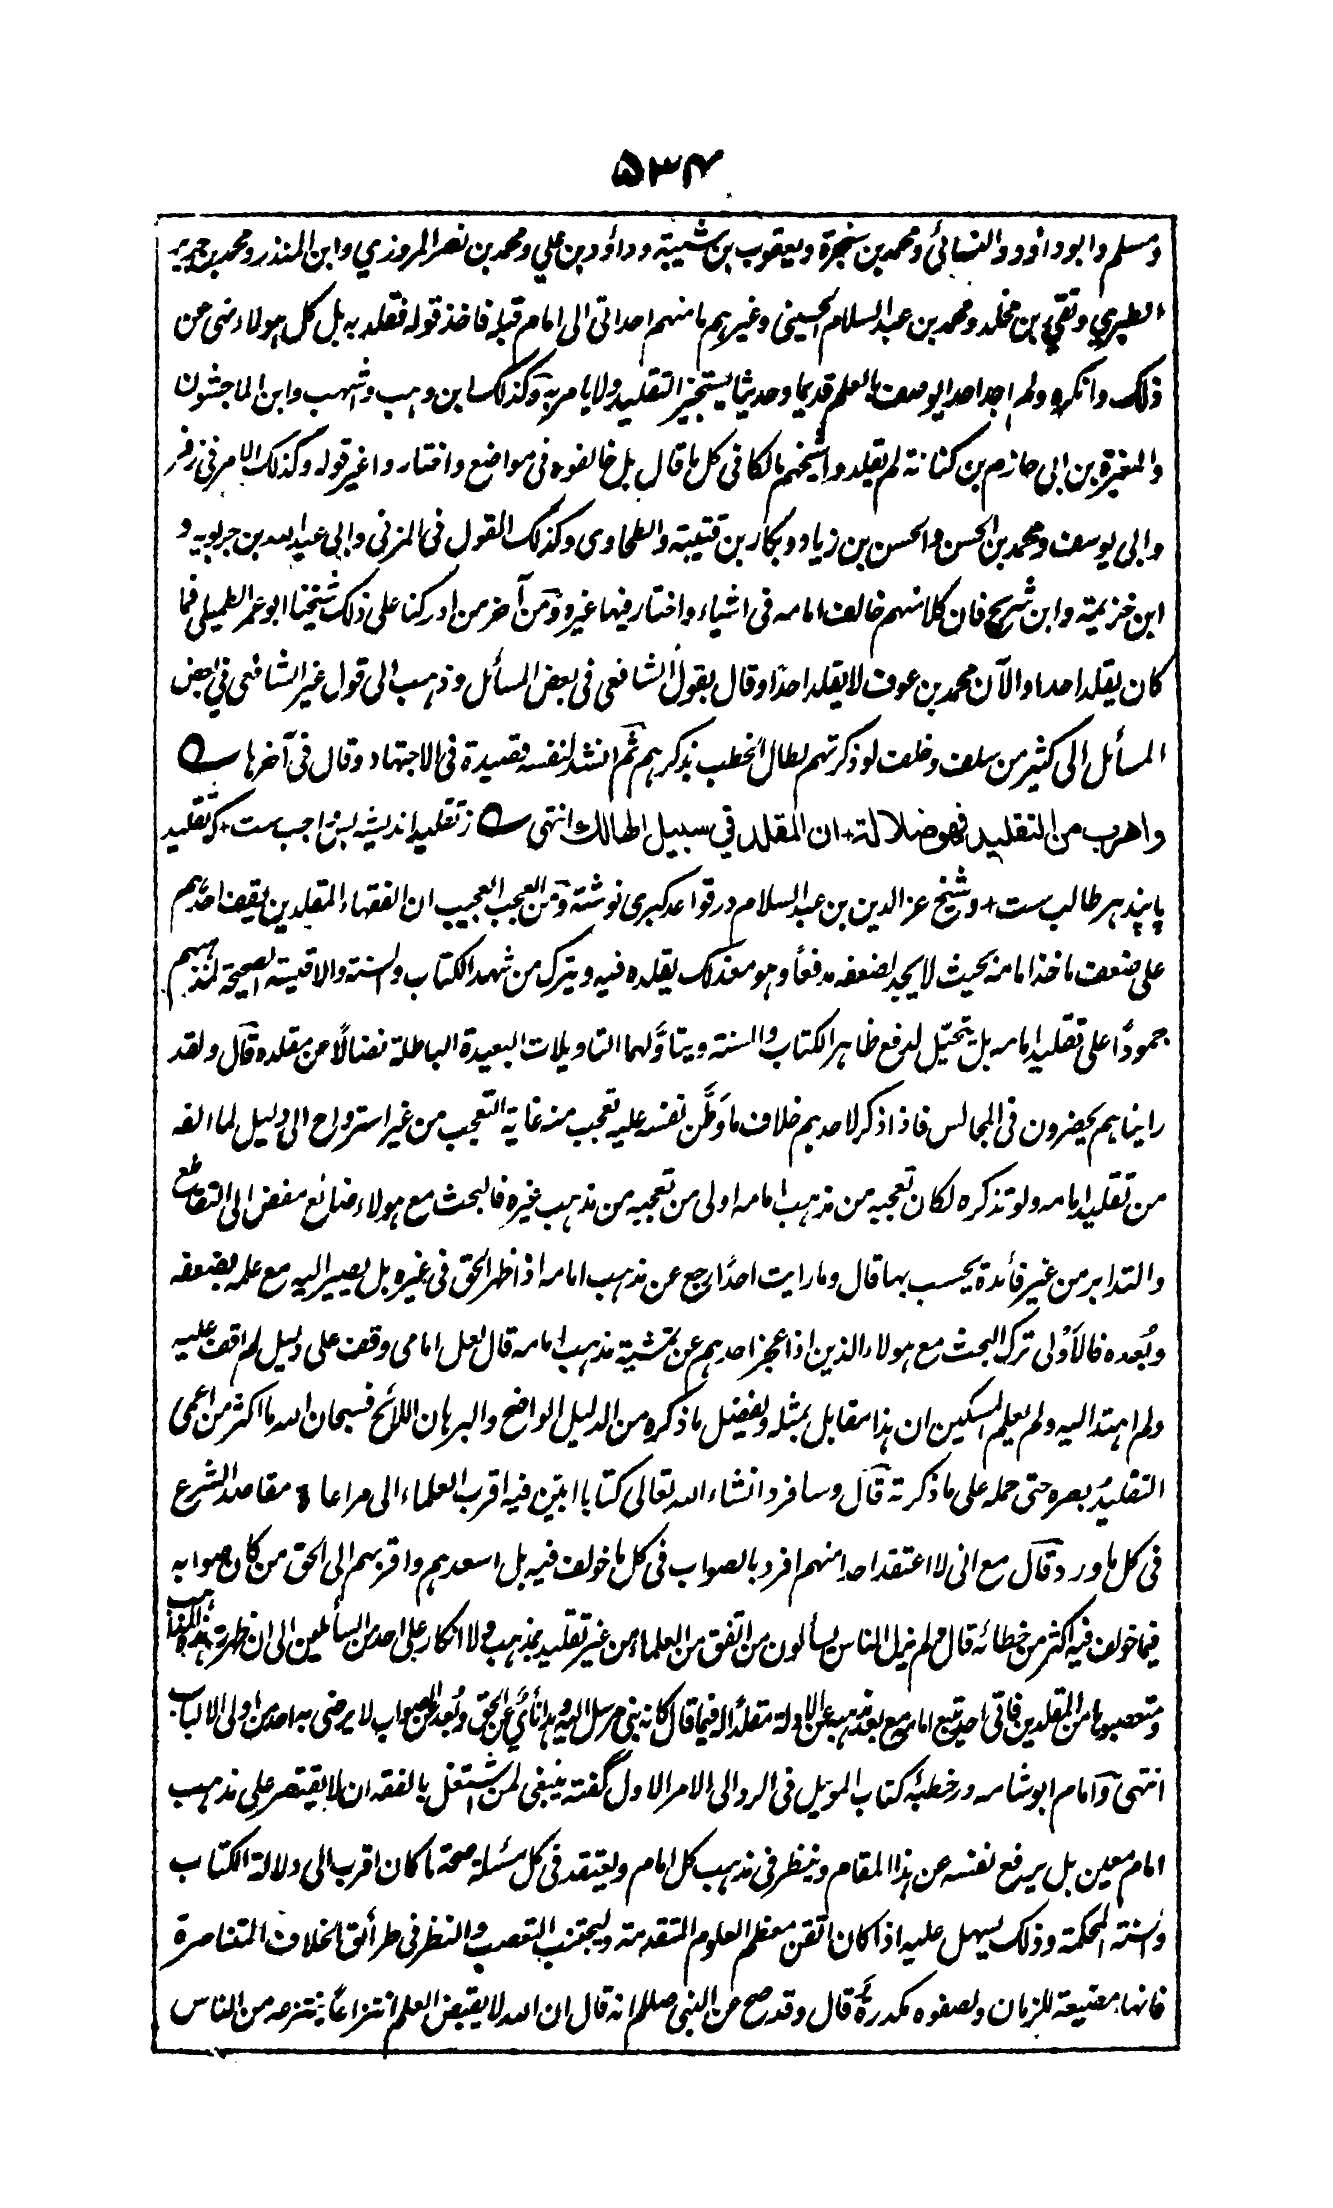 ۵۳۴
ومسلم وابوداؤد والنسائی ومحمد بن سنجرة ویعقوب بن شیبة وداؤد بن علی ومحمد بن نصر المروزی وابن المنذر ومحمد بن جریر
الطبری وتقی بن مخلد ومحمد بن عبد السلام الحسینی وغیرہم ما منہم احد اتی الی امام قبلہ فاخذ قولہ فقلد بہ بل کل ہولاء نہی عن
ذلک وانکرہ ولم اجد احد الیوصف بالعلم قدیما وحدیثا یستجیز التقلید ولا یامر بہ وکذلک ابن وہب واشہب وابن الماجشون
والمغیرة بن ابی حازم بن کنانة لم یقلدوا شیخہم مالکا فی کل ما قال بل خالفوہ فی مواضع واختاروا غیر قولہ وکذلک الامر فی زفر
وابی یوسف ومحمد بن الحسن والحسن بن زیاد وبکار بن قتیبة والطحاوی وکذلک القول فی المزنی وابی عبید اللہ بن حربویہ و
ابن خزیمة وابن شریح فان کلا منہم خالف امامہ فی اشیاء واختار فیہا غیرہ ومن آخر من ادرکنا علی ذلک شیخنا ابو عمر الطلمیلی فما
کان یقلد احدا والآن محمد بن عوف لا یقلد احدًا وقال بقول الشافعی فی بعض المسائل وذہب الی قول غیر الشافعی فی بعض
المسائل الی کثیر من سلف وخلف لو ذکرتہم لطال الخطب بذکرہم ثم انشد لنفسہ قصیدة فی الاجتہاد وقال فی آخرہا ؎
واهرب من التقلید فهو ضلالة + ان المقلد فی سبیل الهالك انتہی ؎ ز تقلید اندیشہ بس واجب ست + کہ تقلید
پابند ہر طالب ست + وشیخ عز الدین بن عبد السلام در قواعد کبری نوشتہ ومن العجب العجیب ان الفقہاء المقلدین یقف احدہم
علی ضعف ماخذ امامہ بحیث لا یجد لضعفہ مدفعًا وہو مع ذلک یقلدہ فیہ ویترک من شہد الکتاب والسنة والاقیسة الصحیحة لمذہبہم
جمودًا علی تقلید امامہ بل یتحیّل لدفع ظاہر الکتاب والسنة ویتاوّلہما التاویلات البعیدة الباطلة نضالًا عن مقلدہ قال ولقد
رایناہم یحضرون فی المجالس فاذا ذکر لاحدہم خلاف ما وَطَّن نفسہ علیہ تعجب منہ غایة التعجب من غیر استرواح الی دلیل لما الفہ
من تقلید امامہ ولو تذکرہ لکان تعجبہ من مذہب امامہ اولی من تعجبہ من مذہب غیرہ فالبحث مع ہولاء ضائع مفض الی التقاطع
والتدابر من غیر فائدة یحسب بہا قال وما رایت احدًا رجع عن مذہب امامہ اذا ظہر الحق فی غیرہ بل یصیر الیہ مع علمہ بضعفہ
وبُعدہ فالأوْلی ترک البحث مع ہولاء الذین اذا عجز احدہم عن تمشیة مذہب امامہ قال لعل امامی وقف علی دلیل لم اقف علیہ
ولم اہتد الیہ ولم یعلم المسکین ان ہذا مقابل بمثلہ ویفضل ما ذکرہ من الدلیل الواضح والبرہان اللائح فسبحان اللہ ما اکثر من اعمی
التقلیدُ بصرہ حتی حملہ علی ما ذکرتہ قال وسافرد انشاء اللہ تعالی کتابا ابین فیہ اقرب العلماء الی مراعاة مقاصد الشرع
فی کل ما ورد قال مع انی لا اعتقد احدا منہم افرد بالصواب فی کل ما خولف فیہ بل اسعدہم واقربہم الی الحق من کان صوابہ
فیما خولف فیہ اکثر من خطائہ قال ولم یزل الناس یسألون من اتفق من العلماء من غیر تقلید بمذہب ولا انکار علی احد من السائلین الی ان ظہرت ہذہ المذاہب
ومتعصبوہا من المقلدین فاتی احد یتبع امامہ مع بعد مذہبہ عن الادلة مقلدًا لہ فیما قال کانہ نبی مرسل الیہ وہذا نأیٌ عن الحق وبُعد عن الصواب لا یرضی بہ احد من اولی الالباب
انتہی وامام ابو شامہ در خطبۂ کتاب الموبل فی الرد الی الامر الاول گفتہ ینبغی لمن اشتغل بالفقہ ان لا یقتصر علی مذہب
امام معین بل یرفع نفسہ عن ہذا المقام وینظر فی مذہب کل امام ویعتقد فی کل مسئلة صحة ما کان اقرب الی دلالة الکتاب
والسنة المحکمة وذلک یسہل علیہ اذا کان اتقن معظم العلوم المتقدمة ولیجتنب التعصب والنظر فی طرائق الخلاف المتناصرة
فانہا مضیعة للزمان ولصفوہ مکدرة قال وقد صح عن النبی صللم انہ قال ان اللہ لا یقبض العلم انتزاعًا ینتزعہ من الناس